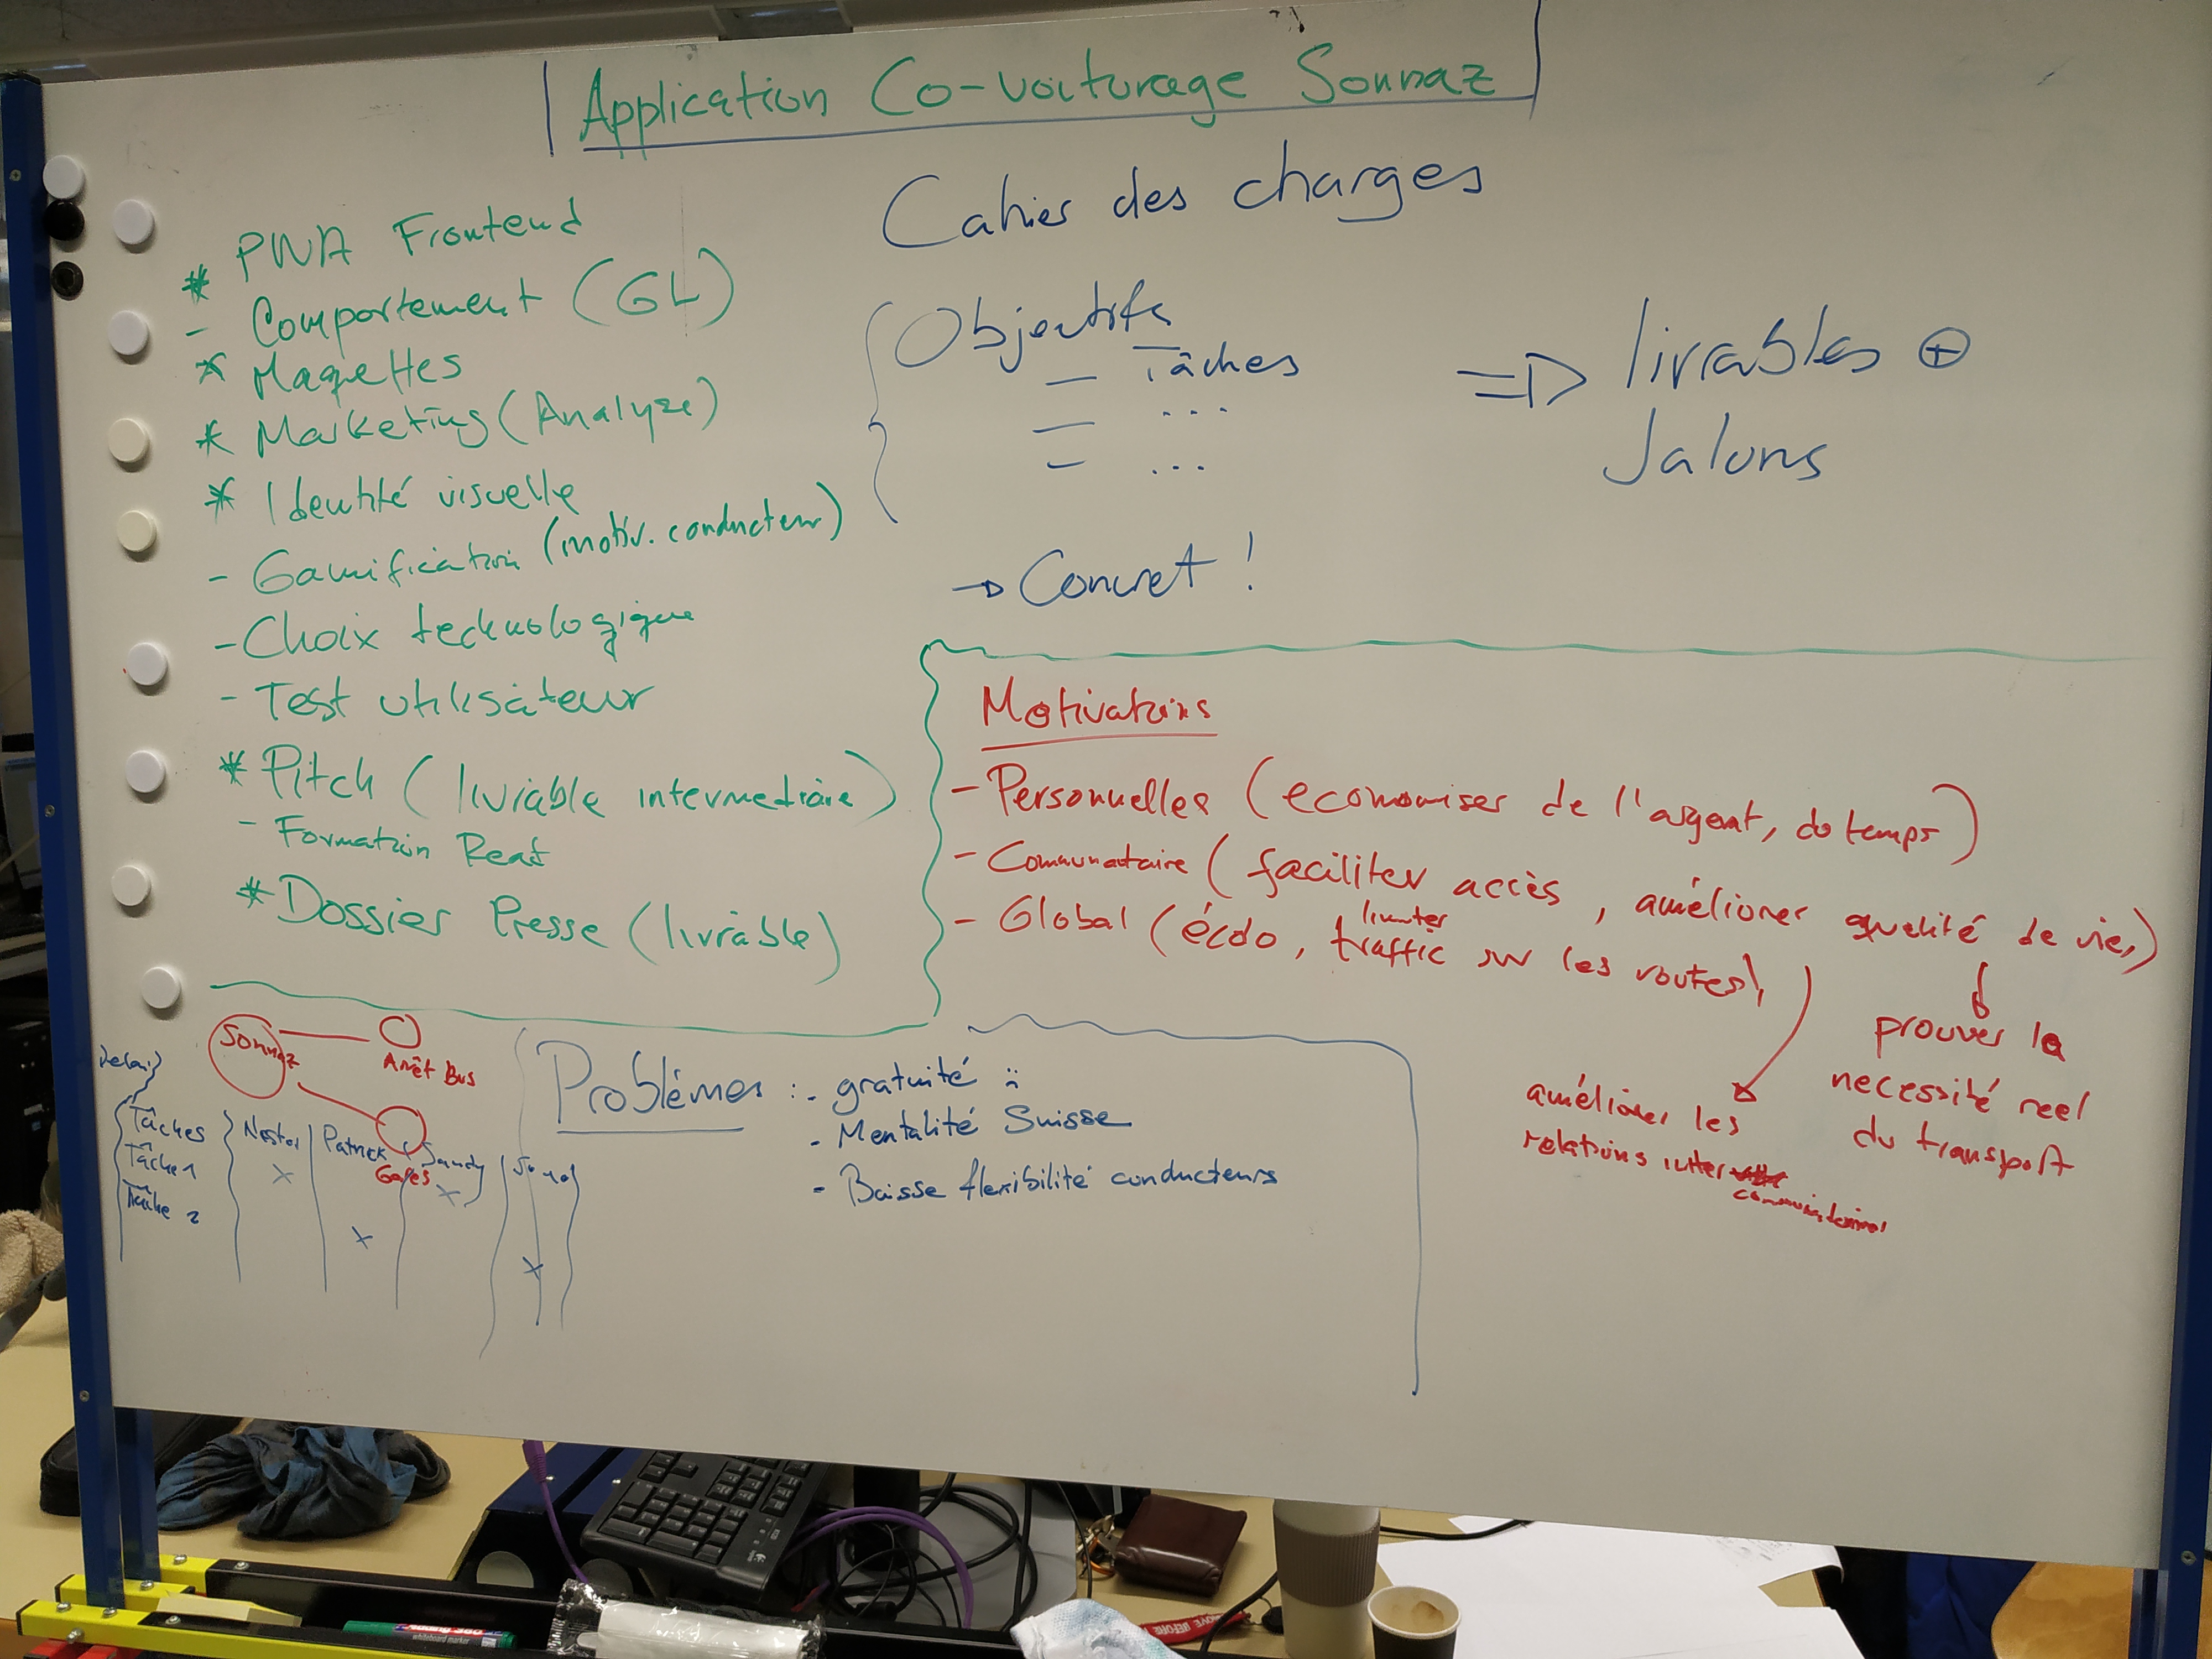 Application Co-voiturage Sonnaz
Cahier des charges
* PWA Frontend
- Comportement (GL)
* Maquettes
* Marketing (Analyze)
* Identité visuelle
- Gamification (motiv. conducteur)
- Choix technologique
- Test utilisateur
* Pitch (livrable intermediaire)
- Formation React
* Dossier Presse (livrable)
Objectifs
- Tâches
- ...
- ...
=> livrables ⊕
Jalons
→ Concret !
Motivations
- Personnelles (economiser de l'argent, du temps)
- Communautaire (faciliter accès, améliorer qualité de vie,)
- Global (écolo, limiter traffic sur les routes),
prouver la
necessité reel
du transport
améliorer les
relations inter
Sonnaz
Arrêt Bus
Gares
Delai
Tâches
Tâche 1
Tâche 2
Nestor
Patrick
Sandy
Problèmes : - gratuité :
- Mentalité Suisse
- Baisse flexibilité conducteurs
whiteboard marker